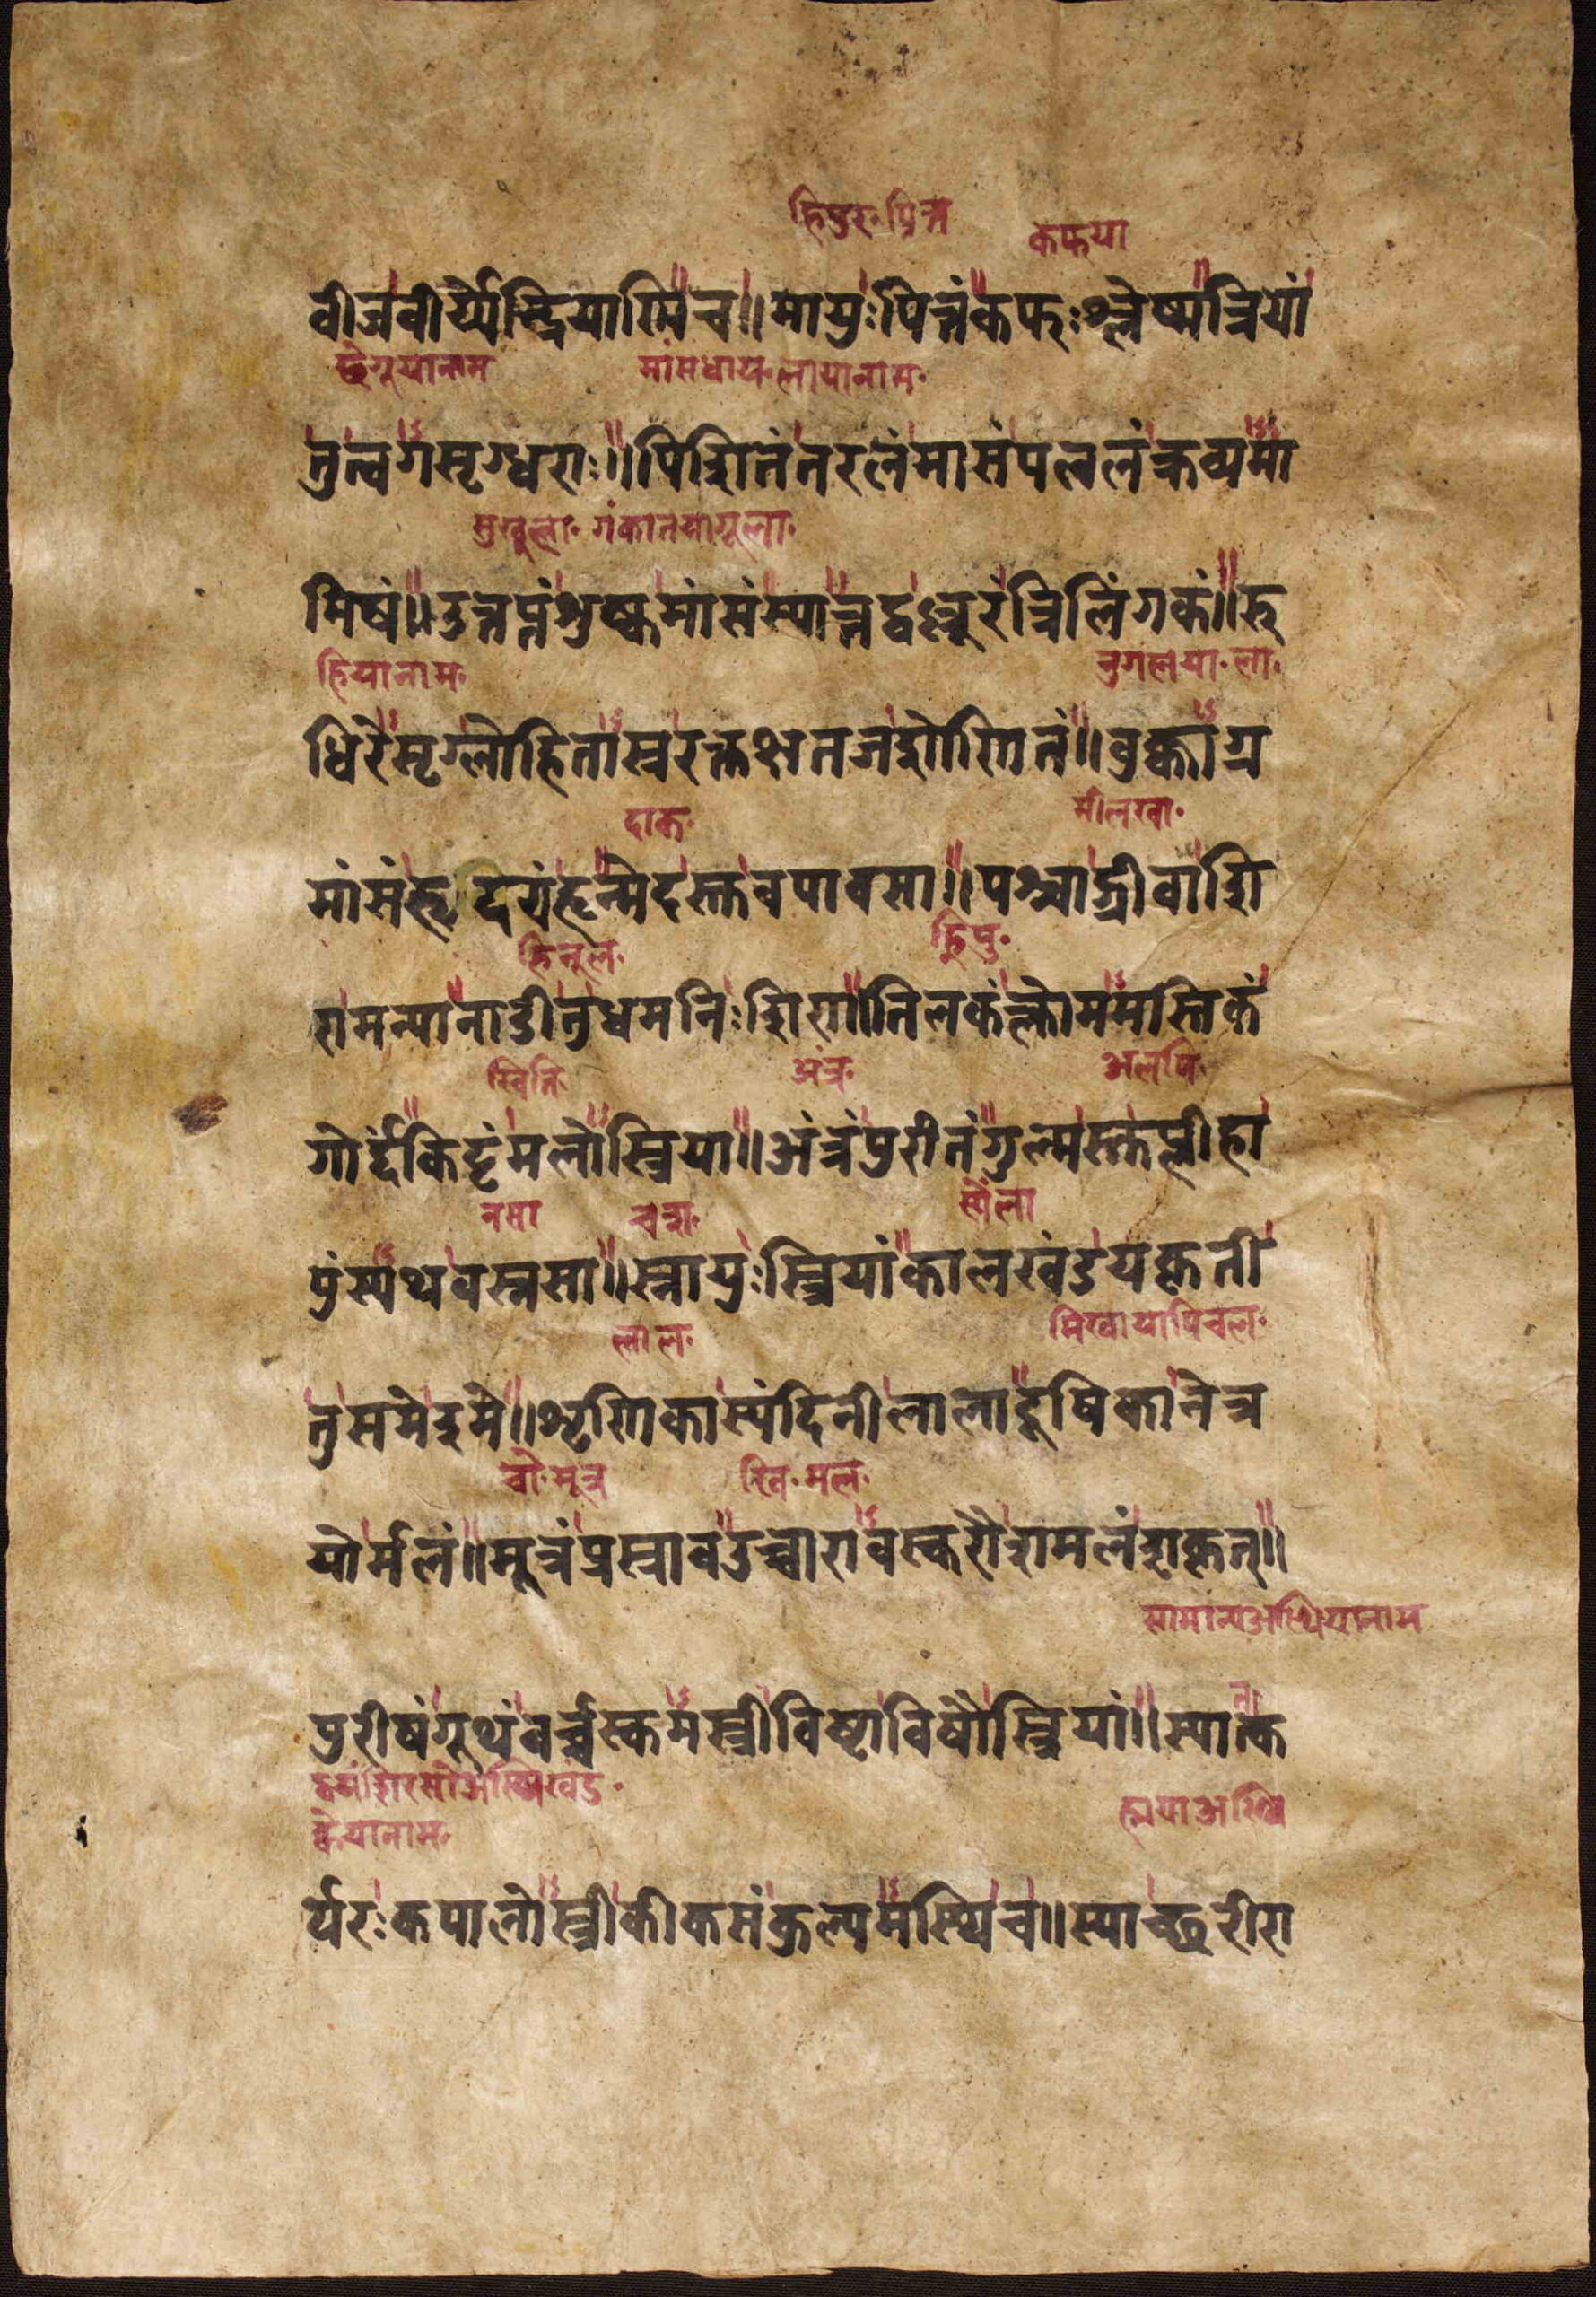 हिपुरु· पित्त कफया
वीजवीर्य्येन्द्रियाणि च॥ मायुः पित्तं कफः श्लेष्म त्रियां
छेंगुयानाम मांसधाय· लायानाम·
तु त्वगसृग्धराः॥ पिशितं तरलं मासं पललं क्रव्यमा
सुखुला· गंकातयागूला·
मिषं॥ उत्तप्तं शुष्कमांसं स्यात्तद्वल्लुरं त्रिलिंगकं॥ रु
हियानाम· नुगलया· ला·
धिरेसृग्लोहितास्ररक्तक्षतजशोणितं॥ वुक्काग्र
दाक· सीलखा·
मांसं हृदयं हृन्मेदस्तु वपा वसा॥ पश्चाद्ग्रीवाशि
हिनूल· हिपु·
रा मन्या नाडी तु धमनिः शिरा॥ तिलकं क्लोम मस्तिकं
खिति· अंत्र· अलपि·
गोर्दं किट्टं मलोस्त्रिया॥ अंत्रं पुरीतं गुल्मस्तु प्लीहा
नसा चशु· स्येंला
पुंस्यथ वस्नसा॥ स्नायुः स्त्रियां कालखंडयकृती
लाल· मिखायापिचल·
तु समे इमे॥ शृणिका स्यंदिनी लाला दूषिका नेत्र
चो· मूत्र खि· मल·
योर्मलं॥ मूत्रं प्रस्राव उच्चारावस्करौ शमलं शकृत्॥
सामान्यअस्थियानाम
पुरीषं गूथं वर्च्चस्कमस्त्री विष्ठाविषौ स्त्रियां॥ स्यात्क
शिरसोअस्थिखंड· ह्मयाअस्थि
यानाम·
र्यरः कपालोस्त्री कीकसं कुल्यमस्थि च॥ स्याच्छरीरा